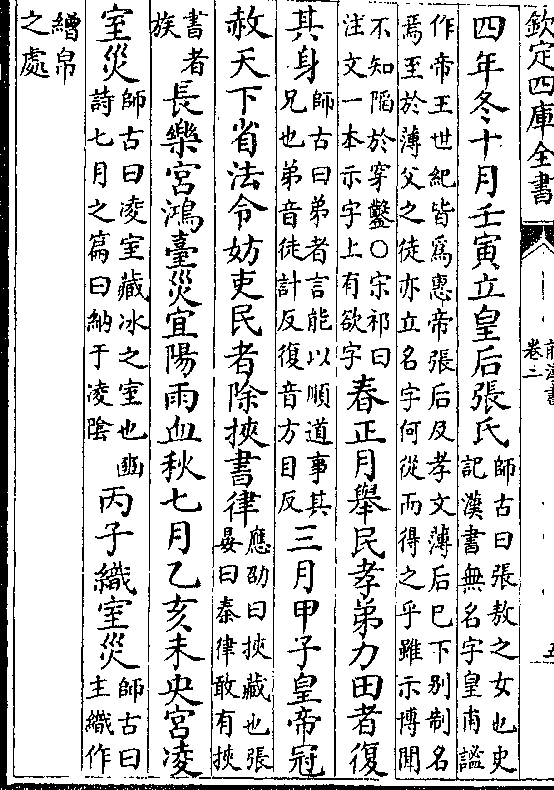 欽定四庫全書
前漢書
卷二
五
四年冬十月壬寅立皇后張氏師古曰張敖之女也史
記漢書無名字皇甫謐
作帝王世紀皆爲惠帝張后及孝文薄后巳下别制名
焉至於薄父之徒亦立名字何從而得之乎雖示博聞
不知陷於穿鑿○宋祁曰
注文一本示字上有欲字
春正月舉民孝弟力田者復
其身
師古曰弟者言能以順道事其
兄也弟音徒計反復音方目反
三月甲子皇帝冠
赦天下省法令妨吏民者除挾書律
應劭曰挾藏也張
晏曰秦律敢有挾
書者
族
長樂宮鴻臺災宜陽雨血秋七月乙亥未央宮凌
室災
師古曰凌室藏冰之室也豳
詩七月之篇曰納于凌陰
丙子織室災
師古曰
主織作
繒帛
之處